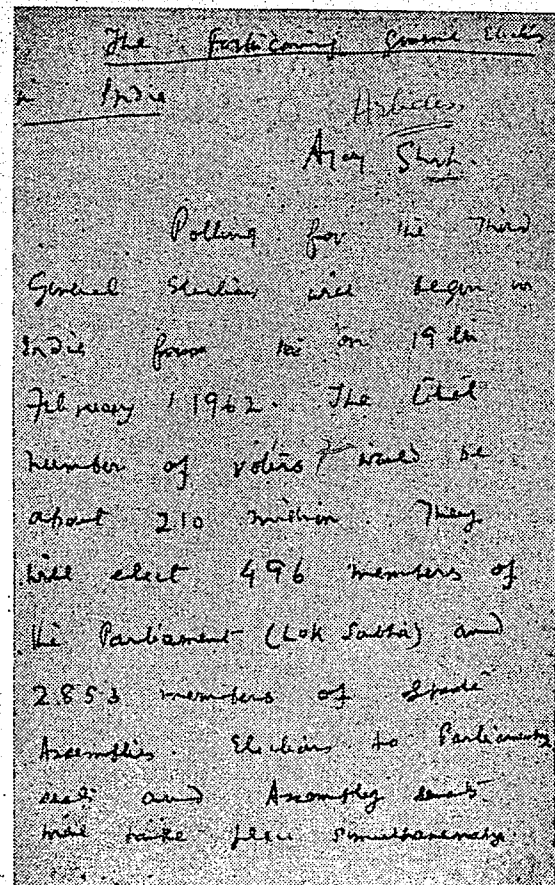 The Forthcoming General Elections
in India
Articles
Ajoy Ghosh.
Polling for the Third
General Elections will begin in
India from the on 19th
February 1962. The total
number of voters would be
about 210 million. They
will elect 496 members of
the Parliament (Lok Sabha) and
2853 members of State
Assemblies. Elections to Parliamentary
seats and Assembly seats
will take place simultaneously.